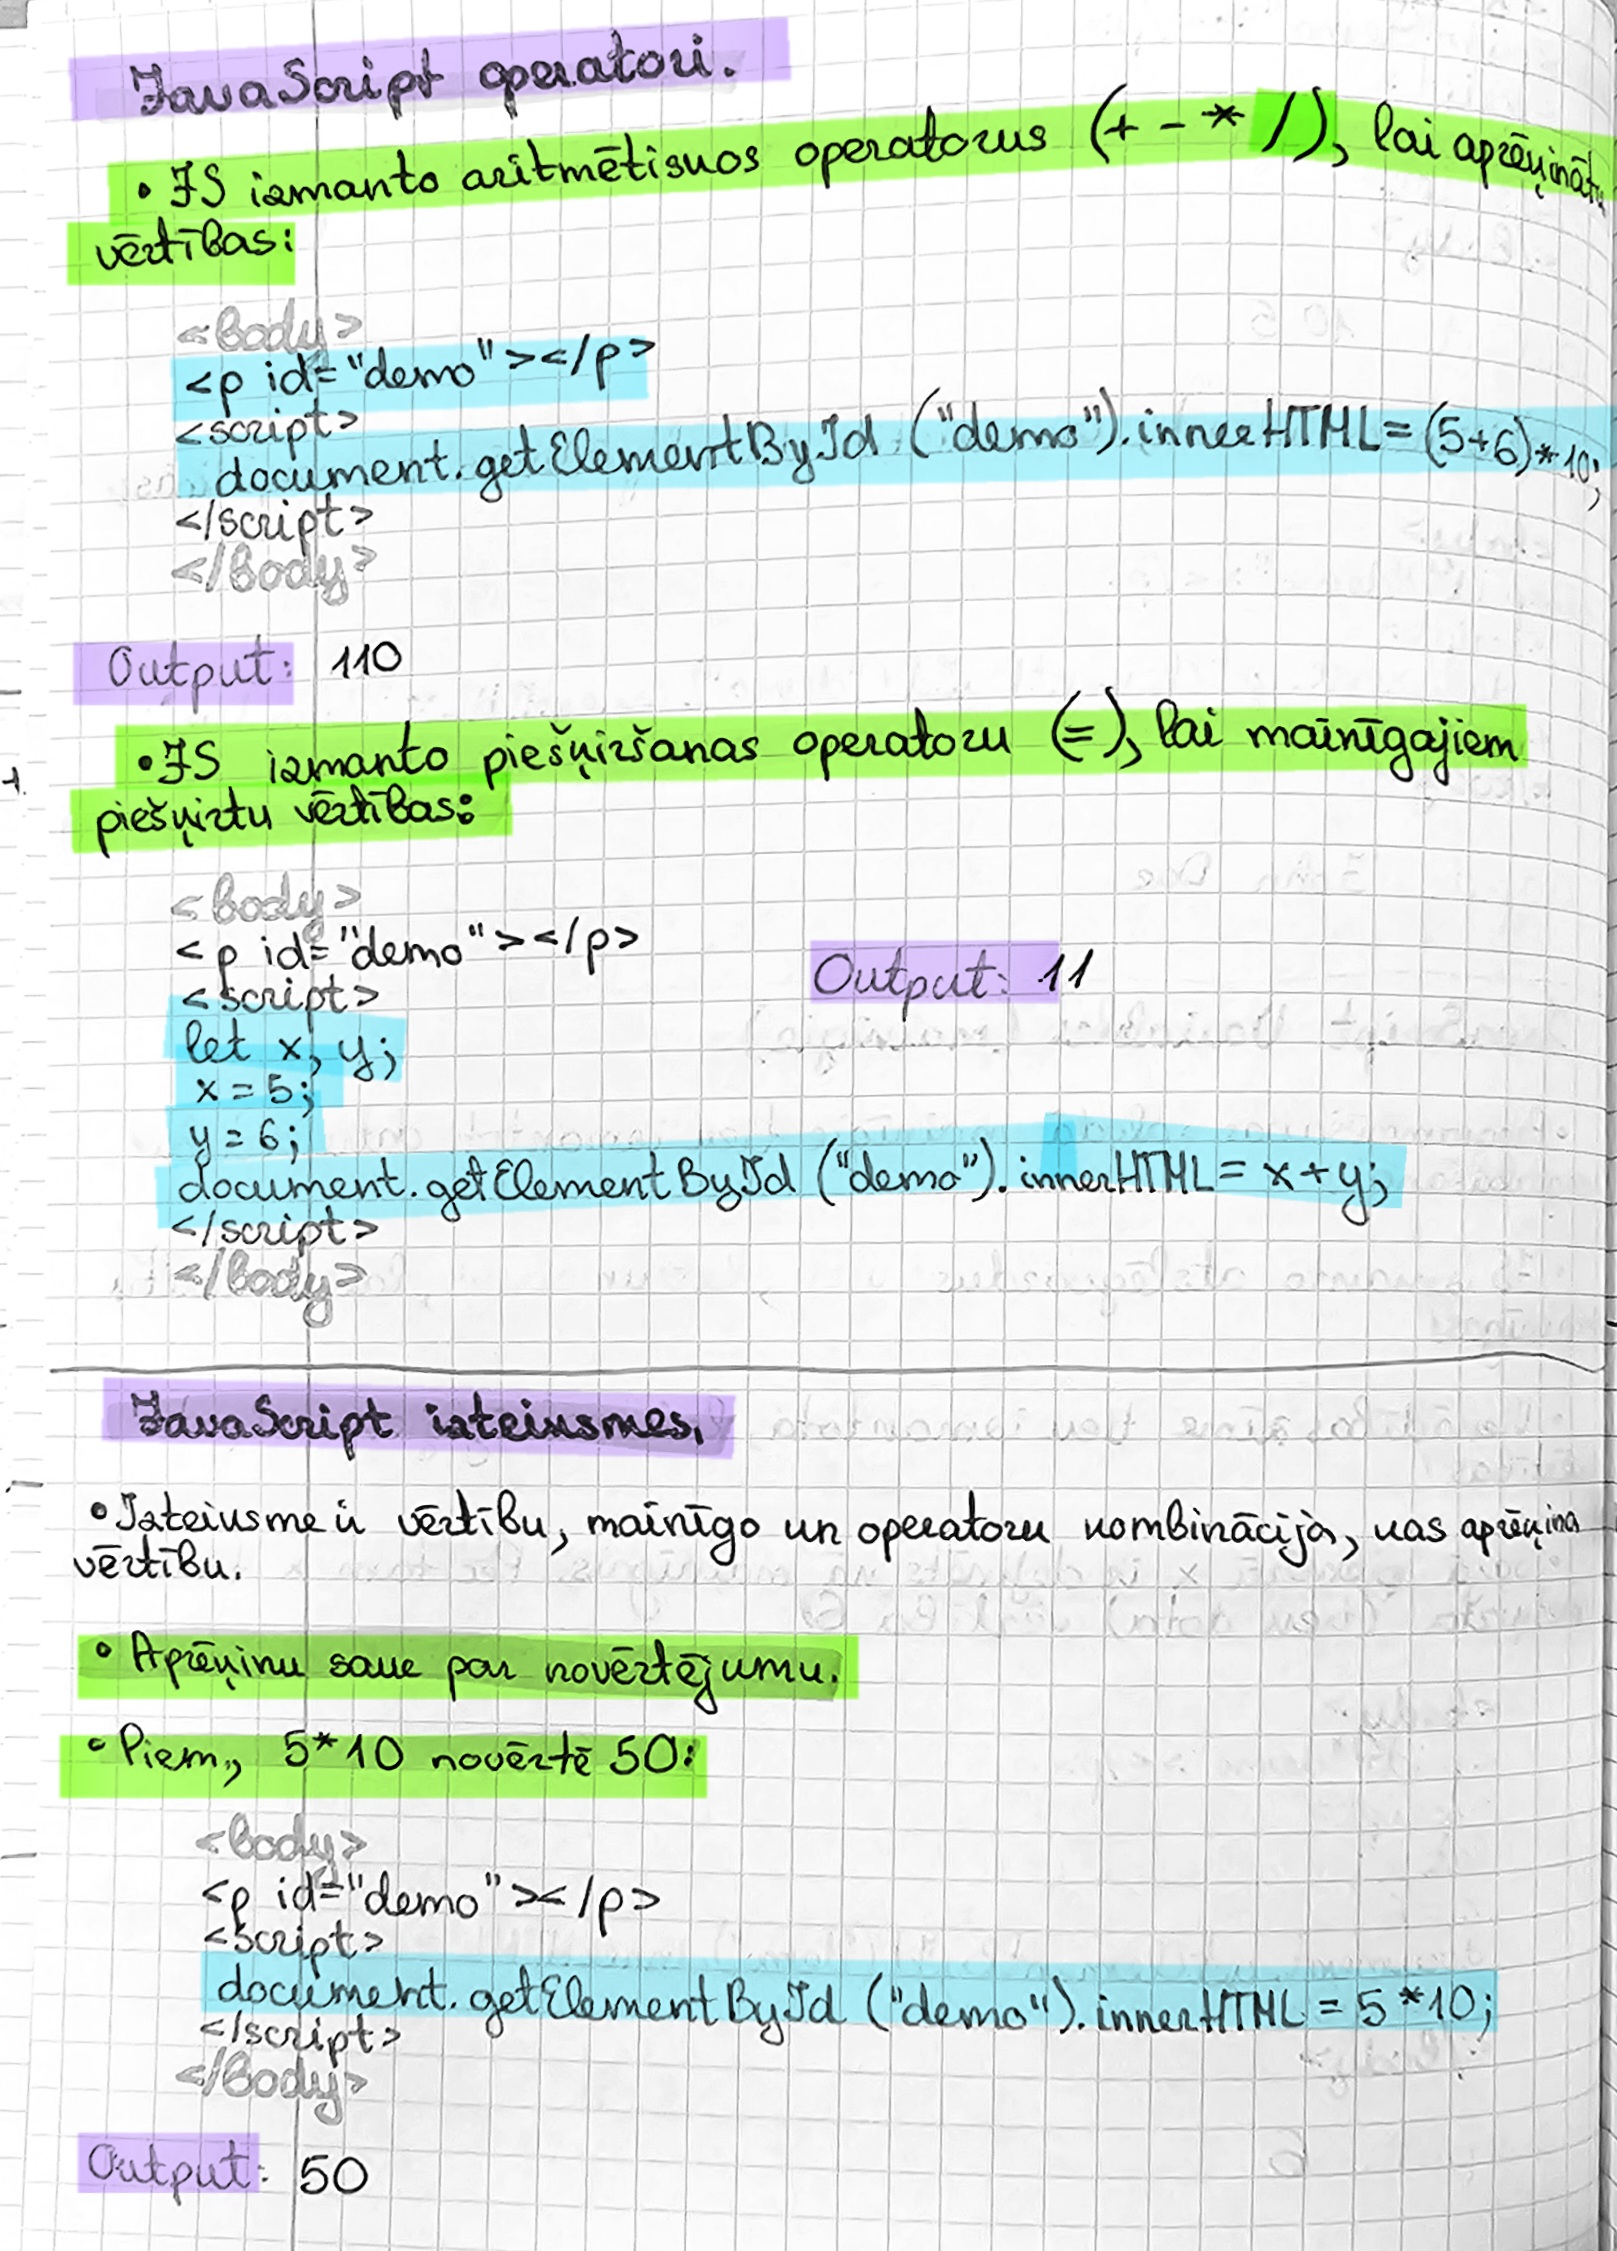 JavaScript operatori.
• JS izmanto aritmētiskos operatorus (+ - * /), lai aprēķinātu
vērtības:
<body>
<p id="demo"></p>
<script>
document.getElementById ("demo").innerHTML = (5+6)*10;
</script>
</body>
Output: 110
• JS izmanto piešķiršanas operatoru (=), lai mainīgajiem
piešķirtu vērtības:
<body>
<p id="demo"></p>
<script>
Output: 11
let x, y;
x = 5;
y = 6;
document.getElementById ("demo").innerHTML = x + y;
</script>
</body>
JavaScript izteiksmes.
• Izteiksme ir vērtību, mainīgo un operatoru kombinācija, kas aprēķina
vērtību.
• Aprēķinu sauc par novērtējumu.
• Piem., 5*10 novērtē 50:
<body>
<p id="demo"></p>
<script>
document.getElementById ("demo").innerHTML = 5*10;
</script>
</body>
Output: 50